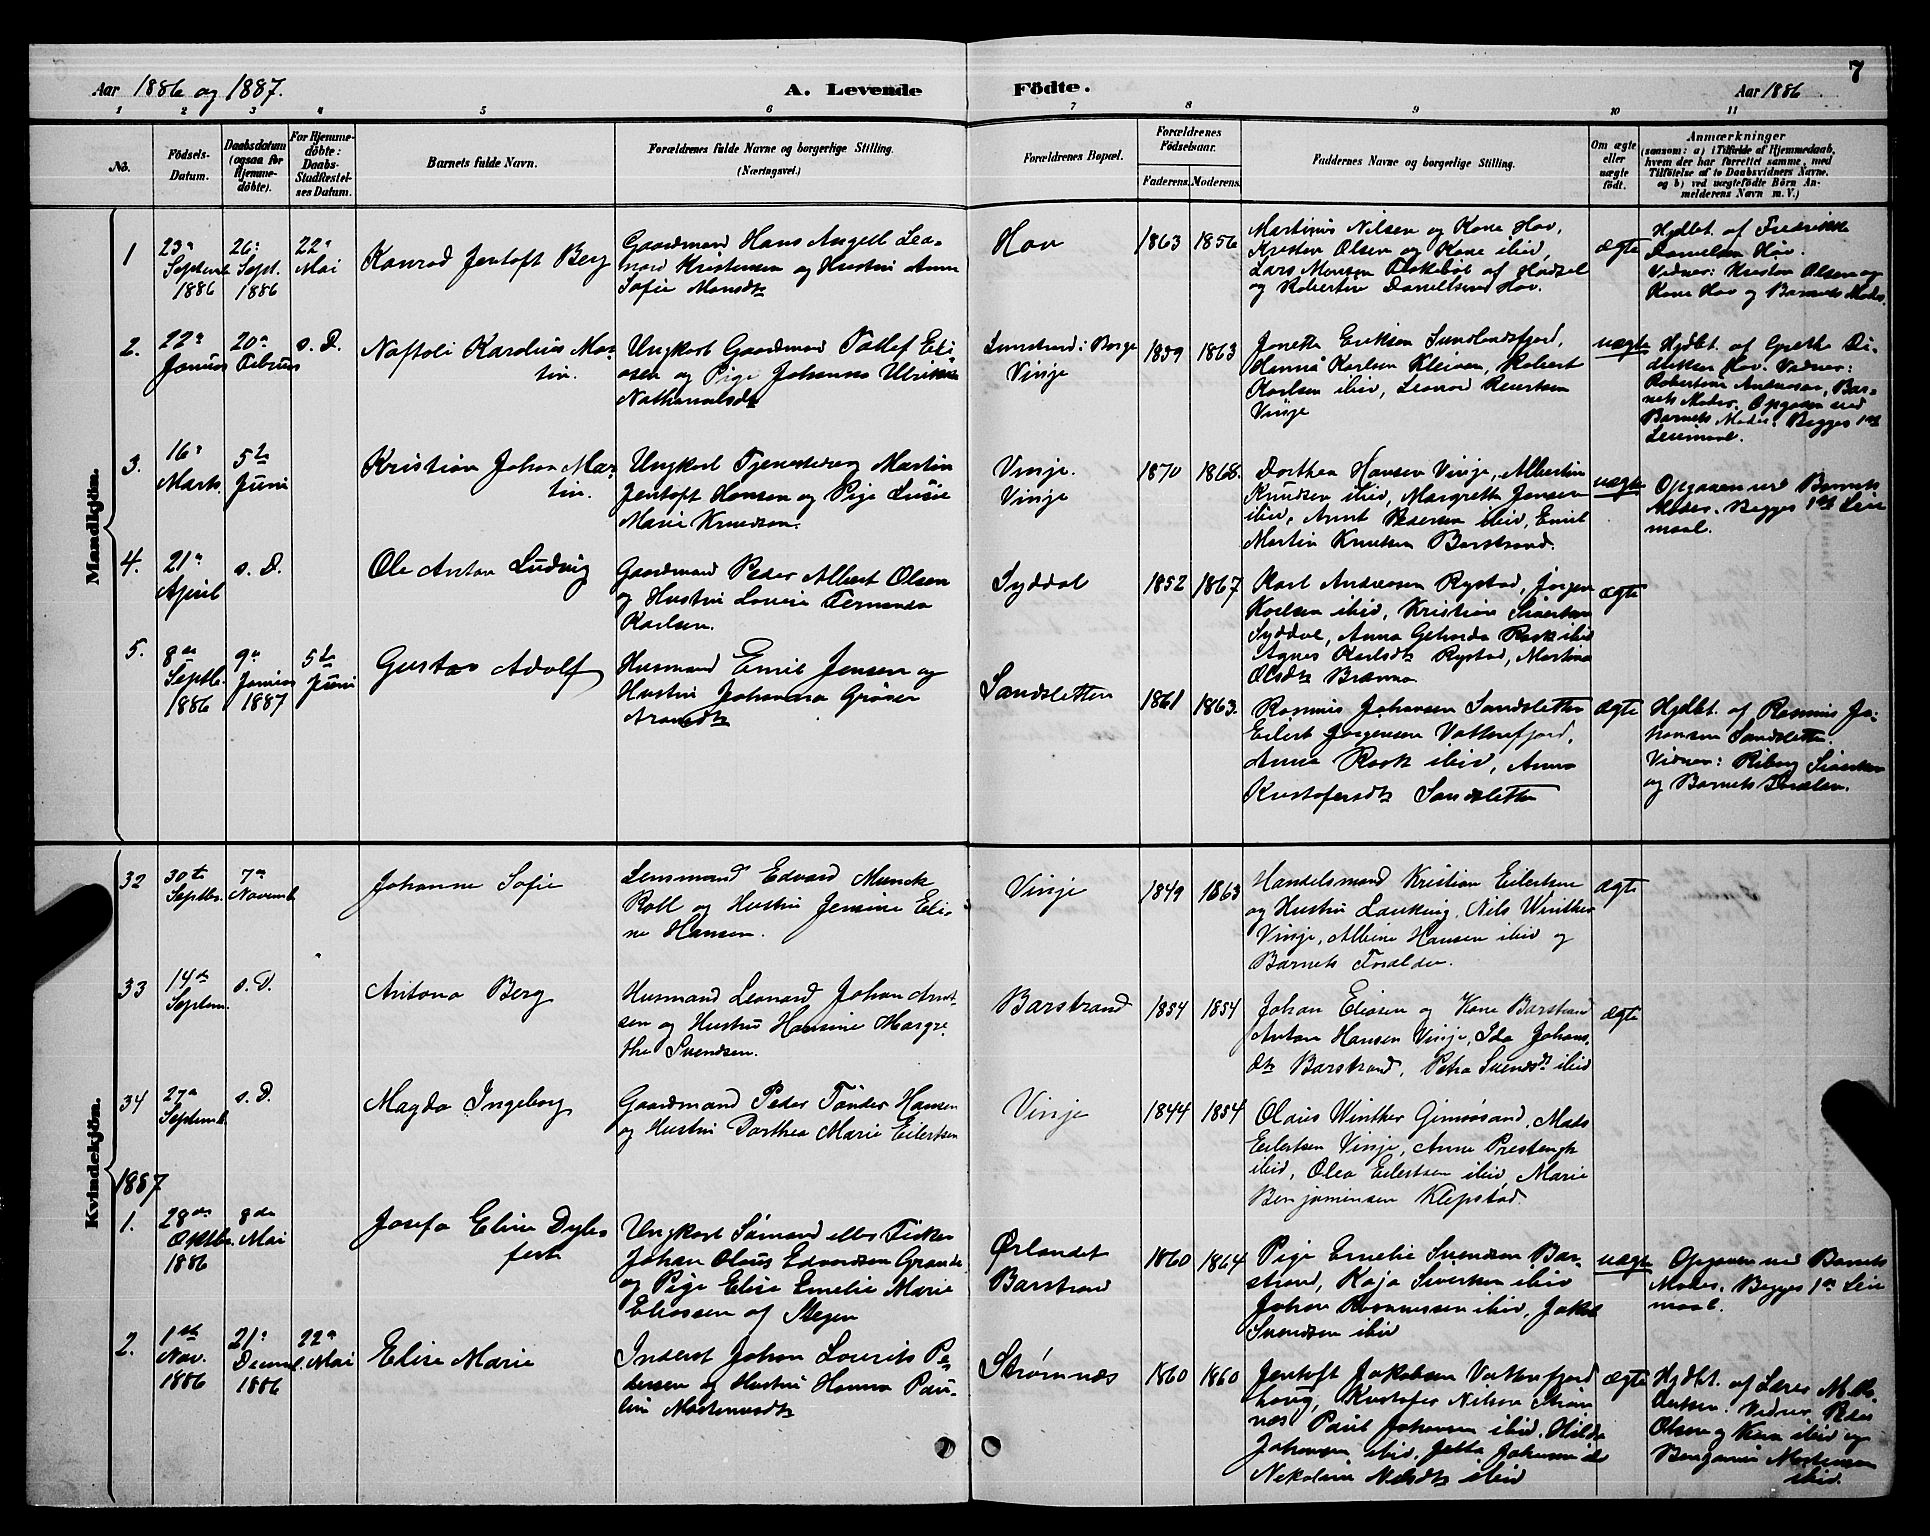 Aar 1886 og 1887.
A. Levende
Födte.
Aar 1886
7
1 2 3 4 5 6 7 8 9 10 11
No.
Födsels-
Datum.
Daabsdatum
(ogsaa for
Hjemme-
döbte).
For Hjemme-
döbte:
Daabs-
Stadfæstel-
ses Datum.
Barnets fulde Navn.
Forældrenes fulde Navne og borgerlige Stilling.
(Næringsvei.)
Forældrenes Bopæl.
Forældrenes
Födselsaar.
Faderens.
Moderens.
Faddernes Navne og borgerlige Stilling.
Om ægte
eller
uægte
födt.
Anmærkninger
(saasom: a) i Tilfælde af Hjemmedaab,
hvem der har forrettet samme, med
Tilföielse af to Daabsvidners Navne.
og b) ved uægtefödte Börn An-
melderens Navn m. V.)
Mandkjön.
1
23de
Septemb.
1886
26de
Sept.
1886
22de
Mai
Konrad Jentoft Berg
Gaardmand Hans Angell Leo-
nard Kristensen og Hustru Anne
Sofie Monsdtr
Hov
1863
1856
Martinus Nilsen og Kone Hov,
Kristen Olsen og Kone ibid,
Lars Monsen af Hadsel
og Robertine Danielsen Hov.
ægte
Hjdbt. af Fredrikke
Danielsen Hov.
Vidner: Kristen Olsen og
Kone Hov og Barnets Moder.
2.
22de
Januar
20de
Februar
s. D.
Naftoli Karolius Mar-
tin.
Ungkarl Gaardmand Tollef Eli-
asen og Pige Johanna Ulrikke
Nathanaelsdtr
Sundsund i Borge
Vinje
1859
1863
Jonette Eriksen Sundlandsfjord,
Hanna Karlsen Kleiven, Robert
Karlsen ibid, Leonard
Vinje
uægte
Hjdbt. af Grethe Di-
driksen Hov. Vidner:
Robertine Andreasen, Bar-
nets Moder. Opgaven ved
Barnets Moder. Begges 1ste
Leiermaal.
3.
16de
Marts.
5te
Juni
Kristian Johan Mar-
tin.
Ungkarl Tjenestedreng Martin
Jentoft Hansen og Pige Lusie
Marie Knudsen.
Vinje.
Vinje
1870
1868.
Dorthea Hansen Vinje, Albertine
Knudsen ibid, Margrethe Jensen
ibid, Arnt Pedersen ibid, Emil
Martin Knudsen Barstrand.
uægte
Opgaven ved Barnets
Moder. Begges 1ste Leier-
maal.
4.
21de
April
s. D.
Ole Anton Ludvig
Gaardmand Peder Albert Olsen
og Hustru Lovise Fernanda
Karlsen.
Syddal
1852
1867
Karl Andreasen Rystad, Jørgen
Karlsen ibid, Kristian Sivertsen
Syddal, Anna Gelarda Rask ibid
Agnes Karlsdtr Rystad, Martina
Olsdtr Brenna
ægte
5.
8de
Septb.
1886
9de
Januar
1887
5te
Juni
Gustav Adolf
Husmand Emil Jensen og
Hustru Johanna Grøger
Aronsdtr
Sandsletten
1861
1863.
Rasmus Johansen Sandsletten
Eilert Jørgensen Vatterfjord,
Anna Rask ibid, Anna
Kristofersdtr Sandsletten
ægte
Hjdbt. af Rasmus Jo-
hansen Sandsletten.
Vidner: Riborg Sivertsen
og Barnets Forældre.
Kvindekjön.
32
30te
Septbr.
7de
Novemb.
Johanne Sofie
Lensmand Edvard Munch
Roll og Hustru Jensine Eli-
ne Hansen.
Vinje
1849
1863
Handelsmand Kristian Eilertsen
og Hustru Laukvig, Nils Winther
Vinje, Albine Hansen ibid og
Barnets Forældre.
ægte
33
14de
Septem.
s. D.
Antona Berg
Husmand Leonard Johan Arnt-
sen og Hustru Hansine Margre-
the Svendsen.
Barstrand
1854
1854
Johan Eliasen og Kone Barstrand
Anton Hansen Vinje, Ida Johans-
dtr Barstrand, Petra Svendsdtr ibid
ægte
34
27de
Septemb.
s. D.
Magda Ingeborg
Gaardmand Peder Tønder Hansen
og Hustru Dorthea Marie Eilertsen
Vinje
1844
1854
Olaus Winther Gimsøsand, Mads
Eilertsen Vinje, Anne Prestengh
ibid, Olea Eilertsen ibid, Marie
Benjaminsen Klepstad.
1887
1.
28de
Oktbr.
1886
8de
Mai
Josefa Elise Dyb-
fest
Ungkarl Sømand eller Fisker
Johan Olaus Edvardsen Grande
og Pige Elise Emelie Marie
Eliassen af Stegen
Ørlandet
Barstrand
1860
1864
Pige Emelie Svendsen Bar-
strand, Kaja Sivertsen ibid
Johan Rasmussen ibid, Jakob
Svendsen ibid
uægte
Opgaven ved Barnets
Moder. Begges 1ste Leier-
maal.
2.
1ste
Nov.
1886
21de
Decemb.
1886
22de
Mai
Elise Marie
Inderst Johan Lourits Pe-
dersen og Hustru Hanna Pau-
line Mortensdtr
Strømnæs
1860
1860
Jentoft Jakobsen Vatterfjord
houg, Kristofer Nilsen Strøm-
næs Paul Johansen ibid, Hilda
Johansen ibid, Jetta Johannesdtr
Nikoline Nilsdtr ibid
ægte
Hjdbt. af Lærer M.
Vidner Peder
Olsen og Kone ibid og
Benjamin Mortensen
ibid.